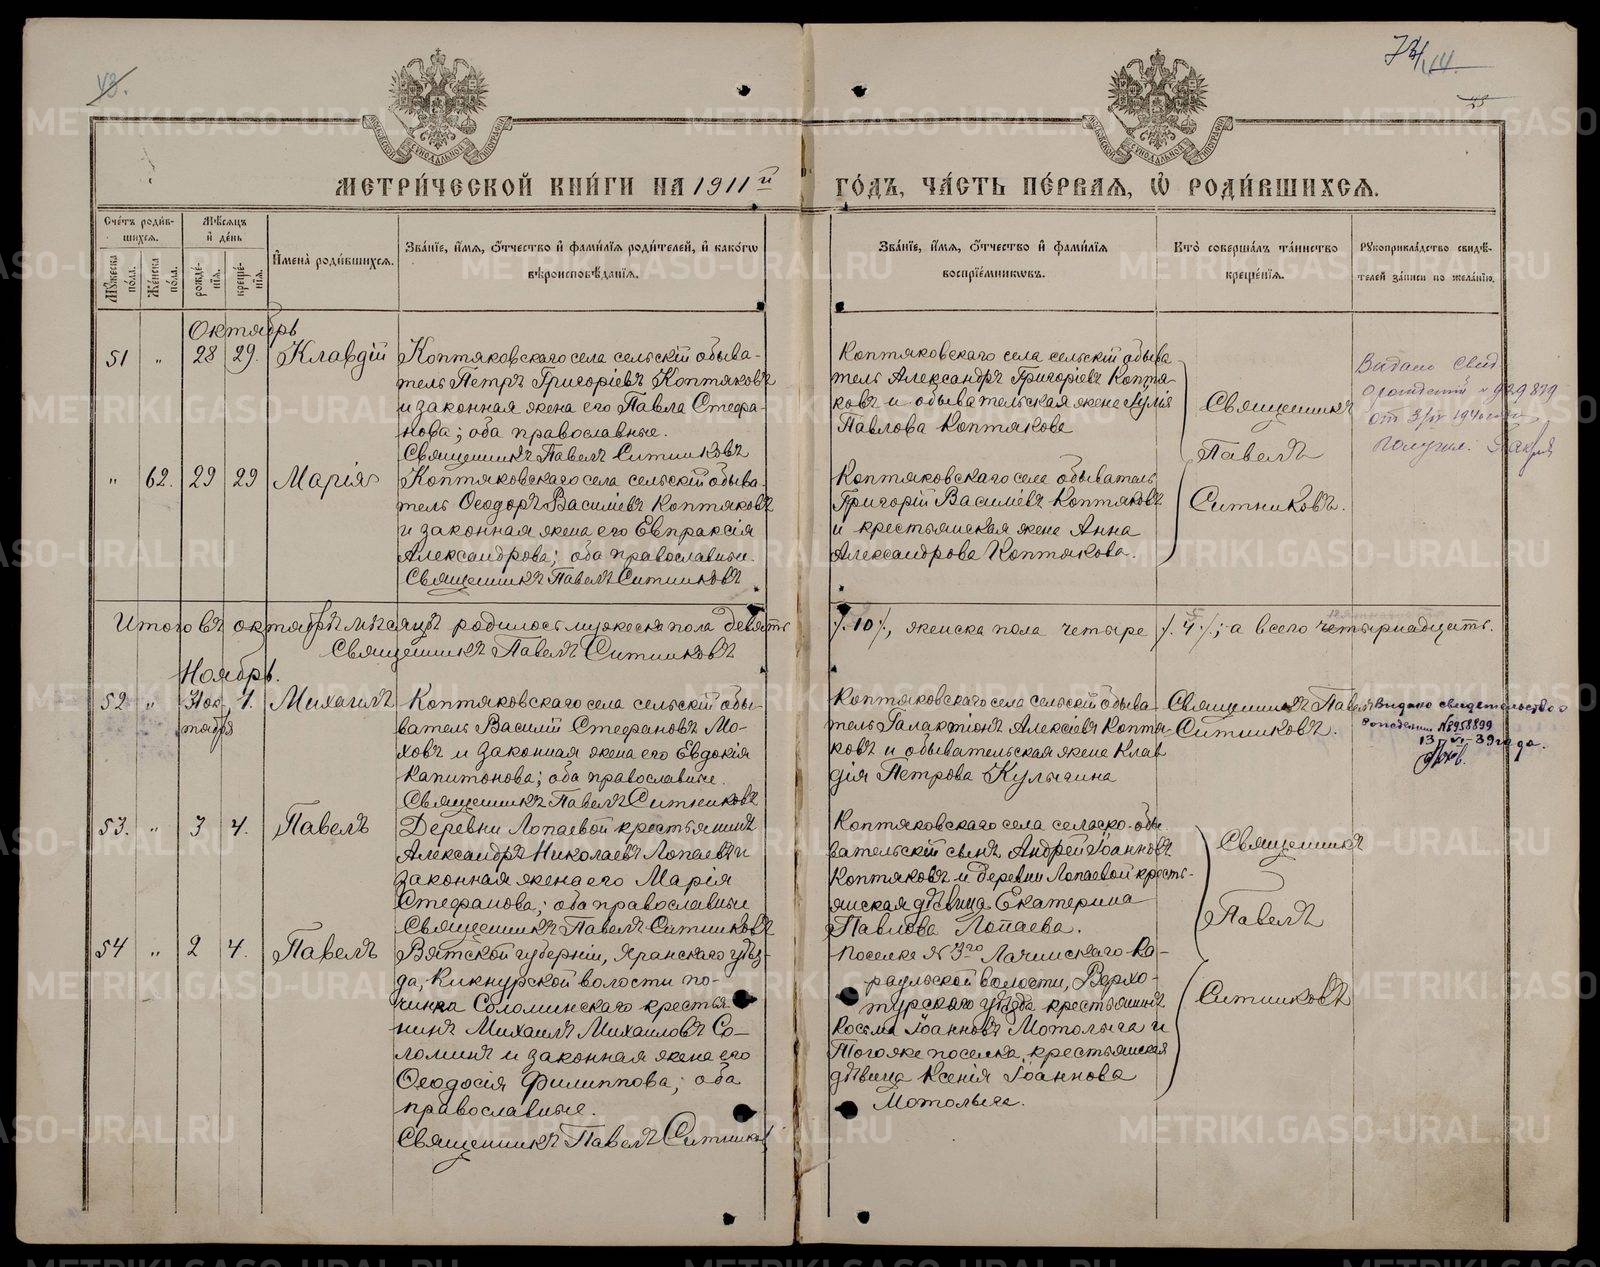 МЕТРИ́ЧЕСКОЙ КНИ́ГИ НА 1911й ГО́ДЪ, ЧА́СТЬ ПЕ́РВАЯ, Ѡ҆ РОДИ́ВШИХСЯ.
Сче́тъ роди́вшихся.
Мѣ́сяцъ и҆ де́нь
Мꙋ́жеска по́ла.
Же́нска по́ла.
рожде́нїя.
креще́нїя.
И҆мена̀ роди́вшихся.
Зва́нїе, и҆́мя, ѻ҆́тчество и҆ фами́лїя роди́телей, и҆ како́гѡ
вѣроисповѣ́данїя.
Зва́нїе, и҆́мя, ѻ҆́тчество и҆ фами́лїя
воспрїе́мникѡвъ.
Кто̀ соверша́лъ та́инство
креще́нїя.
Рꙋкоприкла́дство свидѣ́-
телей за́писи по жела́нїю.
Октябрь
51 " 28 29. Клавдій
Коптяковскаго села сельскій обыва-
тель Петръ Григоріевъ Коптяковъ
и законная жена его Павла Стефа-
нова; оба православные.
Священникъ Павелъ Ситниковъ
Коптяковскаго села сельскій обыва
тель Александръ Григоріевъ Коптя-
ковъ и обывательская жена Іулія
Павлова Коптякова
Священникъ
Павелъ
Ситниковъ.
Видано Свид
о рождении № 929879
от
" 62. 29 29 Марія
Коптяковскаго села сельскій обыва-
тель Ѳеодоръ Василіевъ Коптяковъ
и законная жена его Евпраксія
Александрова; оба православные.
Священникъ Павелъ Ситниковъ
Коптяковскаго села обыватель
Григорій Василіевъ Коптяковъ
и крестьянская жена Анна
Александрова Коптякова.
Итого въ октябрѣ мѣсяцѣ родилось мужеска пола девять /. 10 /., женска пола четыре /. 4 /.; а всего четырнадцать.
Священникъ Павелъ Ситниковъ
Ноябрь.
52 " Ноя 1. Михаилъ
Коптяковскаго села сельскій обы-
ватель Василій Стефановъ Мо-
ховъ и законная жена его Евдокія
Капитонова; оба православные.
Священникъ Павелъ Ситниковъ
Коптяковскаго села сельскій обыва-
тель Галактіонъ Алексіевъ Коптя-
ковъ и обывательская жена Клав
дія Петрова Кулыгина
Священникъ Павелъ
Ситниковъ.
Видано свидетельство о
рождении №8958899
13 - VI - 39 года.
53. " 3 4. Павелъ
Деревни Лопаевой крестьянинъ
Александръ Николаевъ Лопаевъ и
законная жена его Марія
Стефанова; оба православные
Священникъ Павелъ Ситниковъ
Коптяковскаго села сельско-обы
вательскій сынъ Андрей Іоанновъ
Коптяковъ и деревни Лопаевой кресть-
янская дѣвица Екатерина
Павлова Лопаева.
Священникъ
Павелъ
Ситниковъ
54 " 2 4. Павелъ
Вятской губерніи, Яранскаго уѣз-
да, Кикнурской волости по-
чинка Соломинскаго крестья
нинъ Михаилъ Михаиловъ Со-
ломинъ и законная жена его
Ѳеодосія Филиппова; оба
православные.
Священникъ Павелъ Ситниковъ
Поселка № 3го Лачимскаго Ка-
раульской волости, Верхо-
турскаго уѣзда крестьянинъ
Косьма Іоанновъ Мотолыга и
Того же поселка, крестьянская
дѣвица Ксенія Іоаннова
Мотолыга.
METRIKI.GASO-URAL.RU